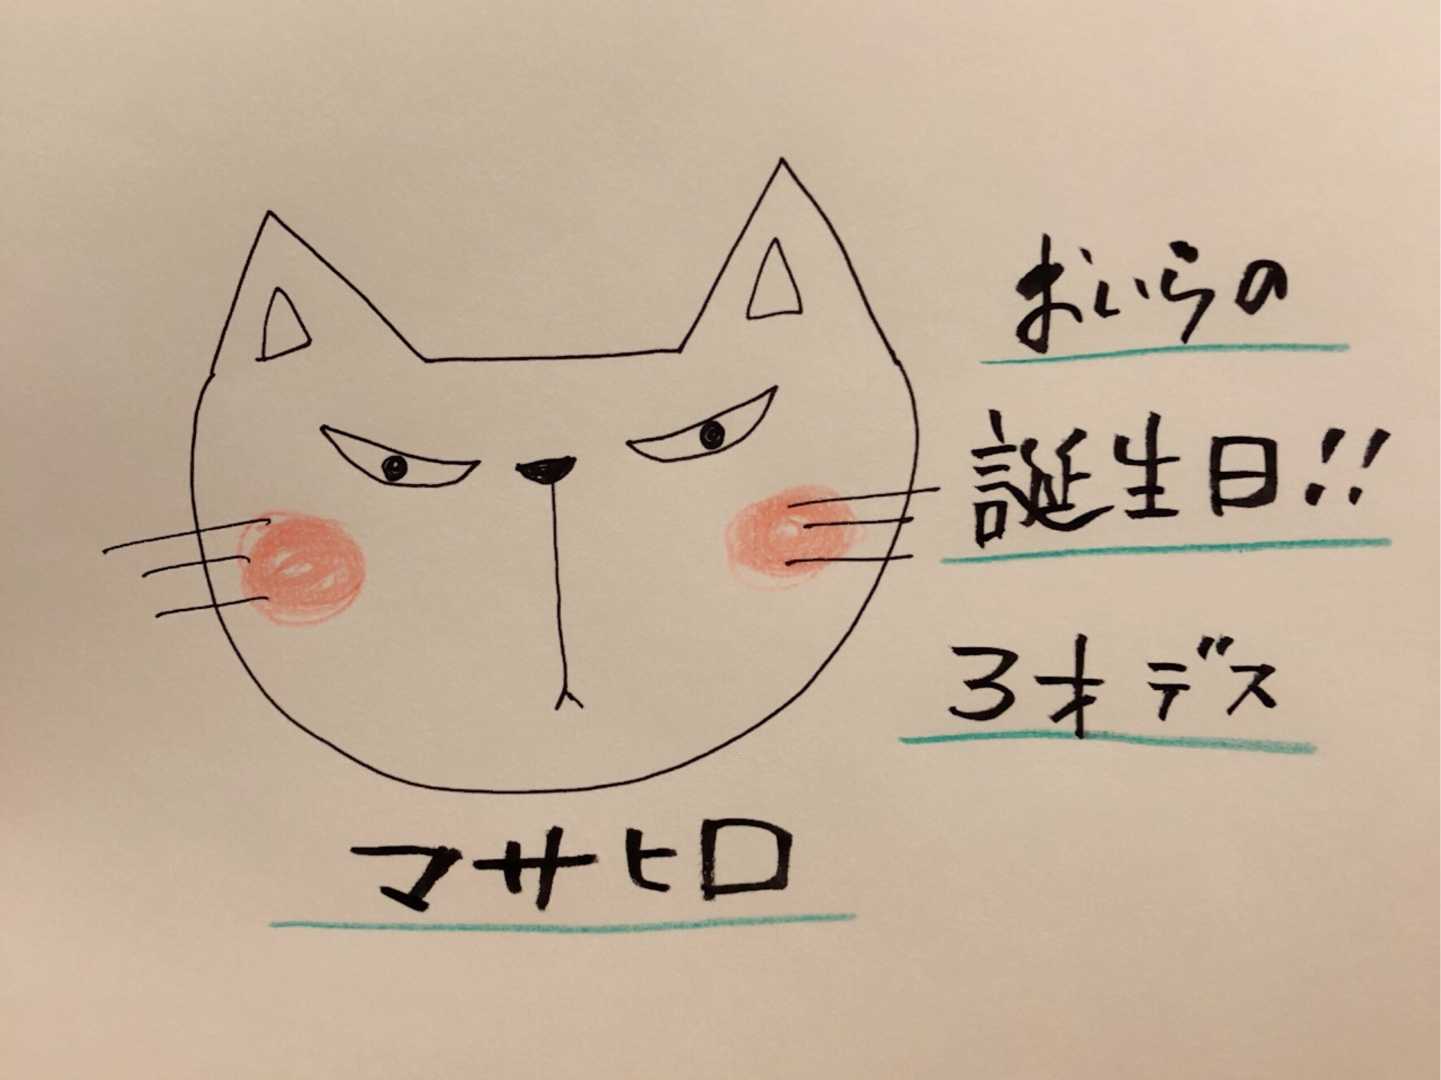 おいらの
誕生日!!
3才デス
マサヒロ